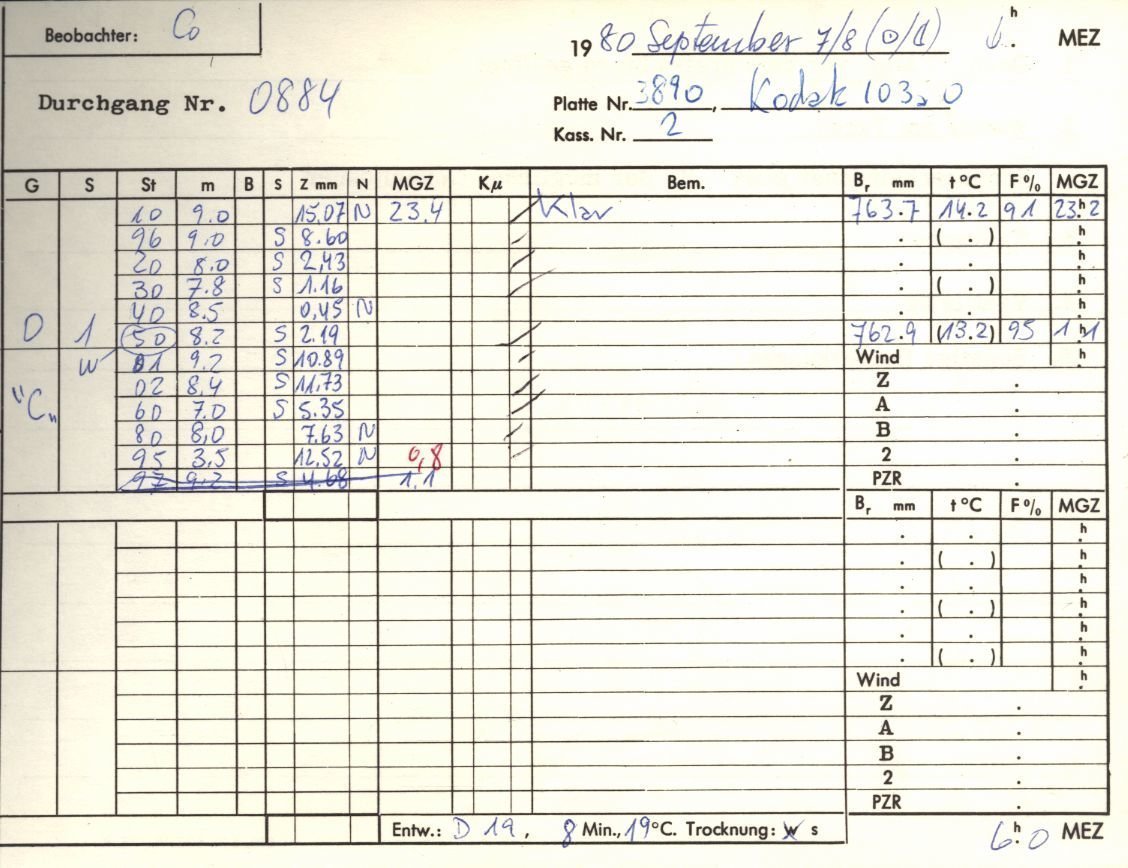 Beobachter: Co
1980 September 7/8 (⊙/☾) 6.h MEZ
Durchgang Nr. 0884
Platte Nr. 3890, Kodak 103a O
Kass. Nr. 2
G S St m B S Z mm N MGZ Kμ Bem. Br mm t°C F% MGZ
10 9.0 15.07 N 23.4 Klar 763.7 14.2 91 23h.2
96 9.0 S 8.60 . ( . ) h.
20 8.0 S 2,43 . . h.
30 7.8 S 1.16 . ( . ) h.
40 8.5 0,45 N . . h.
D 1 50 8.2 S 2.19 762.9 (13.2) 95 1h.1
w 01 9.2 S 10.89 Wind h.
"C" 02 8,4 S 11,73 Z .
60 7.0 S 5.35 A .
80 8,0 7.63 N B .
95 3.5 12,52 N 0,8 2 .
97 9.2 S 4.68 1.1 PZR
Br mm t°C F% MGZ
. . h.
. ( . ) h.
. . h.
. ( . ) h.
. . h.
. ( . ) h.
Wind h.
Z .
A .
B .
2 .
PZR .
Entw.: D 19, 8 Min., 19°C. Trocknung: w s
6h.0 MEZ